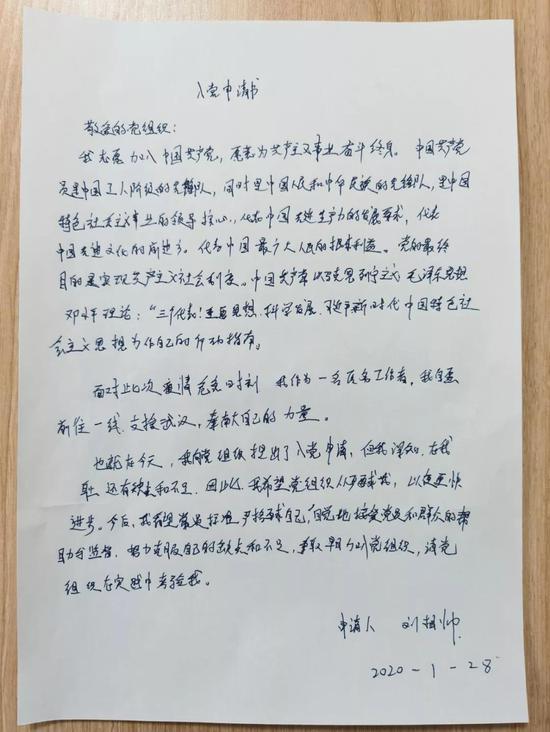 入党申请书
敬爱的党组织：
我志愿加入中国共产党，愿意为共产主义事业奋斗终身。中国共产党
员是中国工人阶级的先锋队，同时是中国人民和中华民族的先锋队，是中国
特色社会主义事业的领导核心，代表中国先进生产力的发展要求，代表
中国先进文化的前进方向，代表中国最广大人民的根本利益。党的最终
目的是实现共产主义社会制度。中国共产党以马克思列宁主义 毛泽东思想
邓小平理论：“三个代表”重要思想、科学发展、习近平新时代中国特色社
会主义思想为作自己的行动指南。
面对此次疫情危急时刻 我作为一名医务工作者，我自愿
前往一线、支援武汉，奉献自己的力量。
也就在今天，我向党组织提出了入党申请，但我深知，在我
身上还有缺点和不足，因此，我希望党组织从严要求我，以使更快
进步。今后，我要用党员标准严格要求自己，自觉地接受党员和群众的帮
助与监督，努力克服自己的缺点和不足，争取早日加入党组织，请党
组织在实践中考验我。
申请人 刘相帅
2020-1-28